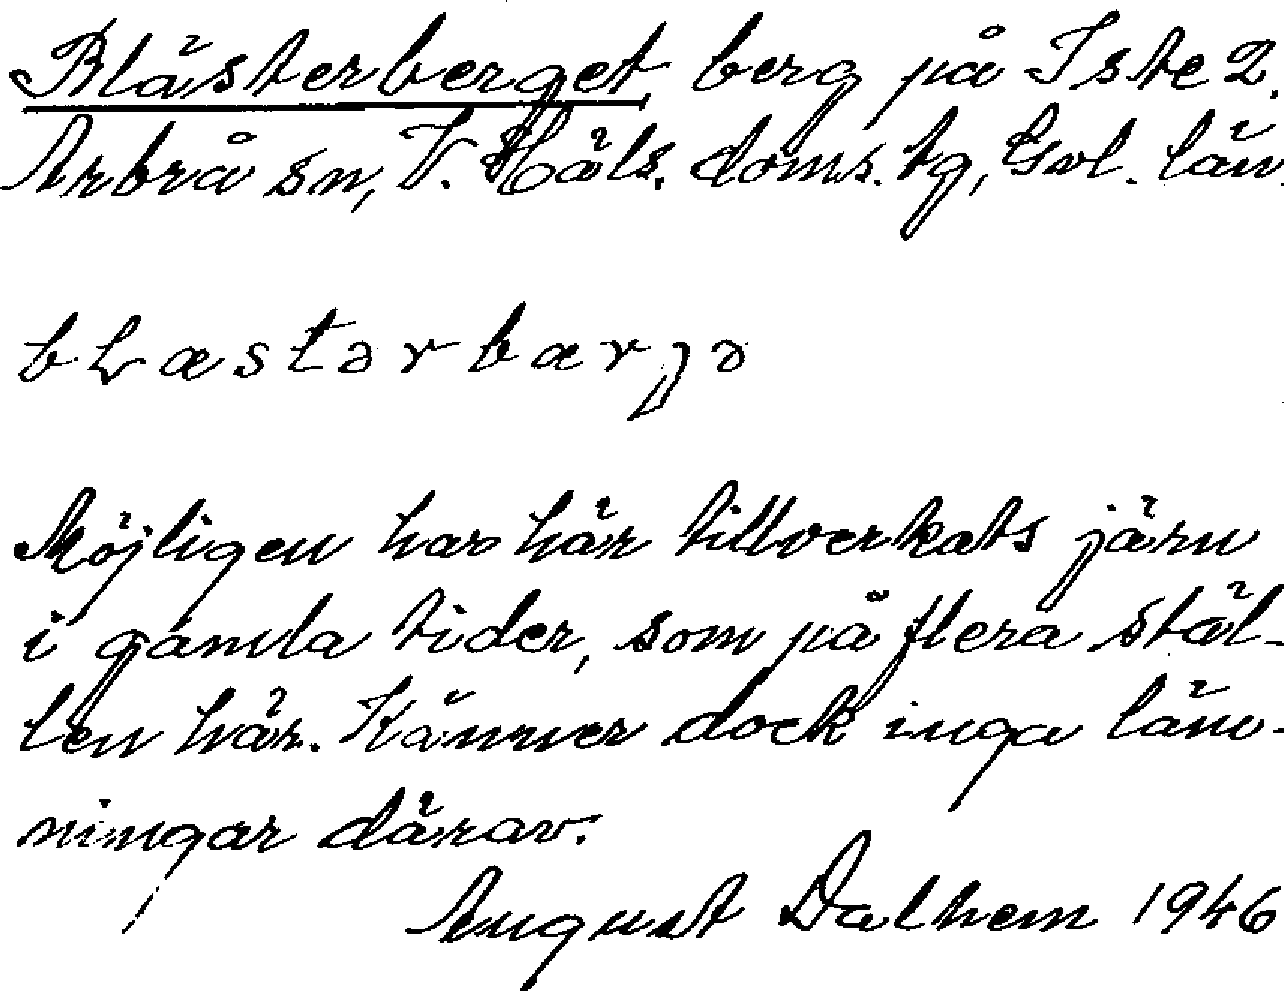 Blästerberget, berg på Iste 2.
Arbrå sn, V. Häls. doms. tg, Gvl. län.
bLæstərbærjə
Möjligen har här tillverkats järn
i gamla tider, som på flera stäl-
len här. Känner dock inga läm-
ningar därav.
August Dalhem 1946